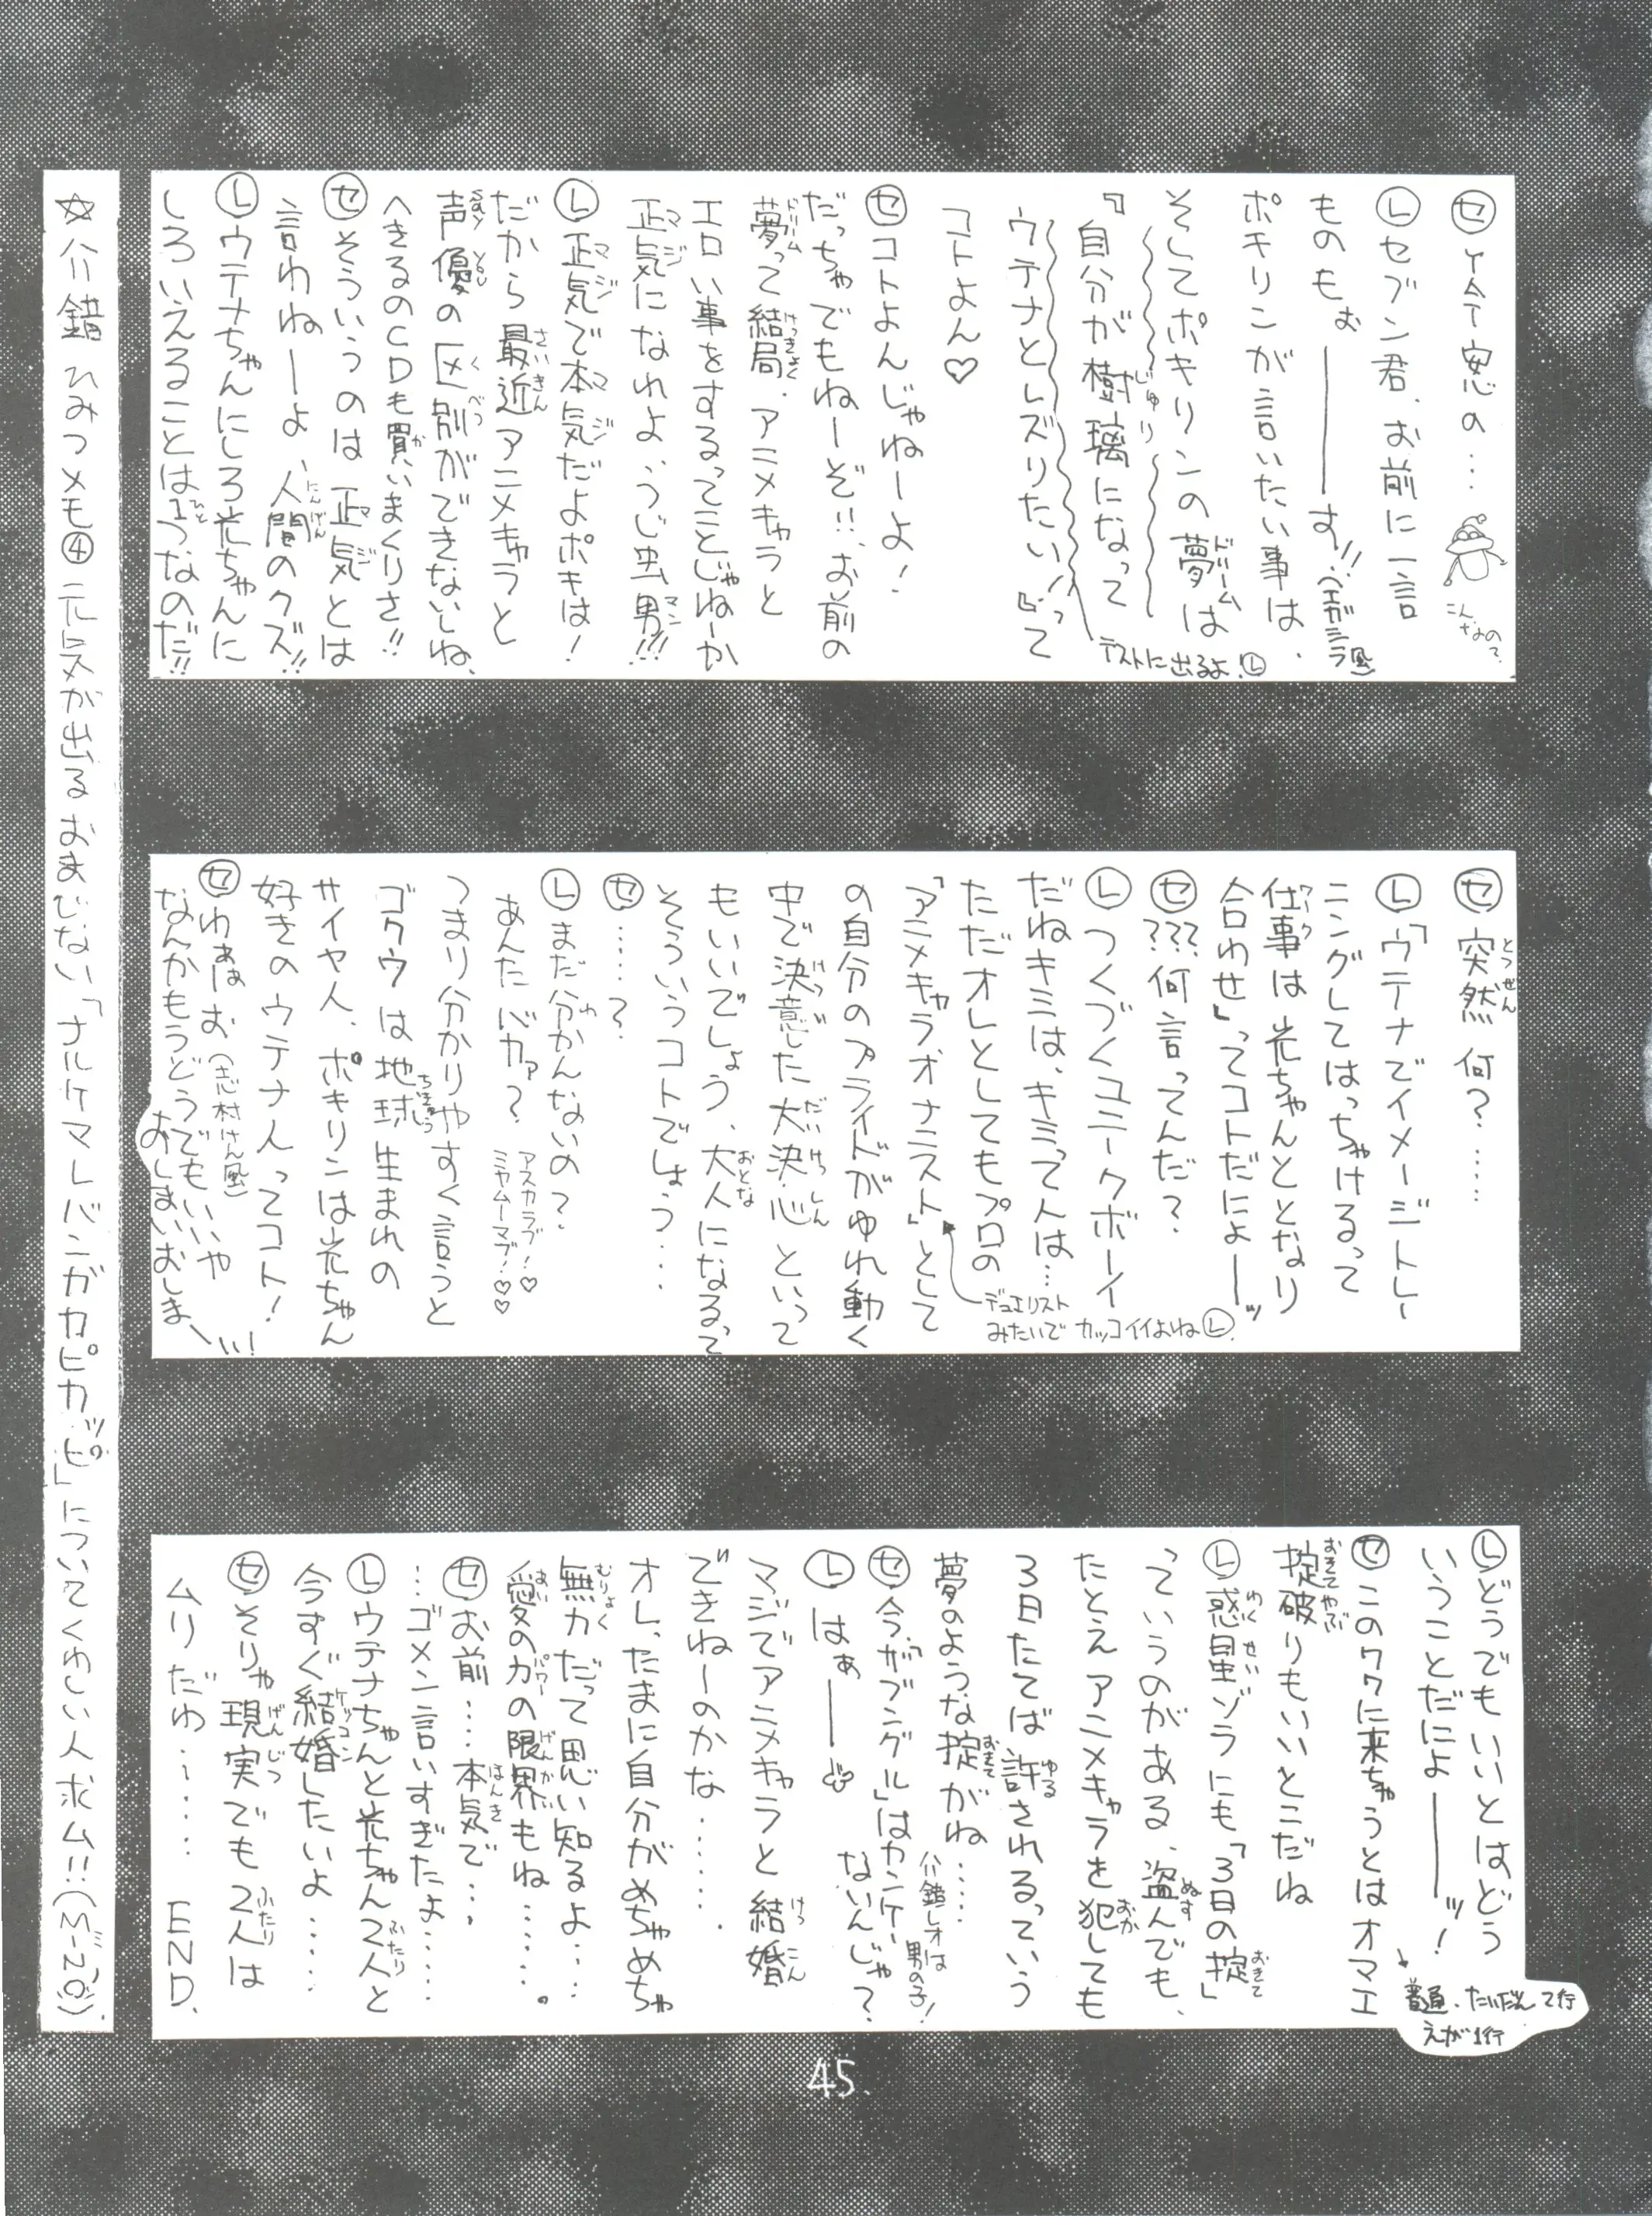 ㋝ 今 恋の…
こんなの?
Ⓛセブン君、お前に一言
ものもぉ――す!!(エガシラ風)
ポキリンが言いたい事は、
そしてポキリンの夢は
『自分が樹璃になって
ウテナとレズりたい!』って
テストに出るよ!Ⓛ
コトよん♡
㋝コトよんじゃねーよ!
だっちゃでもねーぞ!!、お前の
夢って結局、アニメキャラと
エロい事をするってことじゃねーか
正気になれよ、うじ虫男!!!
Ⓛ正気で本気だよポキは!
だから最近アニメキャラと
声優の区別ができないしね、
へきるのCDも買いまくりさ!!
㋝そういうのは正気とは
言わねーよ、人間のクズ!!
Ⓛウテナちゃんにしろ光ちゃんに
しろいえることは1つなのだ!!
㋝突然何?……
Ⓛ「ウテナでイメージトレー
ニングしてはっちゃけるって
仕事は光ちゃんととなり
合わせ」ってコトだによ――ッ
㋝???何言ってんだ?
Ⓛつくづくユニークボーイ
だねキミは、キミって人は…
ただオレとしてもプロの
「アニメキャラオナニスト」として
デュエリスト
みたいでカッコイイよねⓁ
の自分のプライドがゆれ動く
中で決意した大決心といって
もいいでしょう、大人になるって
そういうコトでしょう…
㋝……?
Ⓛまだ分かんないの?
あんたバカァ?
アスカラブ!♡
ミヤムーマブ!♡♡
つまり分かりやすく言うと
ゴクウは地球生まれの
サイヤ人、ポキリンは光ちゃん
好きのウテナ人ってコト!
㋝わぁはお(志村けん風)
なんかもうどうでもいいや
おしまいおしま―い!
Ⓛどうでもいいとはどう
いうことだによ――ッ!
㋝このワクに来ちゃうとはオマエ
普通、たいだん2行
えが1行
掟破りもいいとこだね
Ⓛ惑星ゾラにも「3日の掟」
っていうのがある、盗んでも、
たとえアニメキャラを犯しても
3日たてば許されるっていう
夢のような掟がね……
㋝今、「ザブングル」はカンケー
ないんじゃ?
レオは
男の子!
Ⓛはぁ――
マジでアニメキャラと結婚
できねーのかな……
オレ、たまに自分がめちゃめちゃ
無力だって思い知るよ…
愛の力の限界もね……。
㋝お前…本気で…
…ゴメン言いすぎたよ……
Ⓛウテナちゃんと光ちゃん2人と
今すぐ結婚したいよ……
㋝そりゃ現実でも2人は
ムリだわ…… END.
☆ ひみつメモ④ 元気が出るおまじない「ナルケマレバンガカピカッピ」についてくわしい人求ム!!
45.